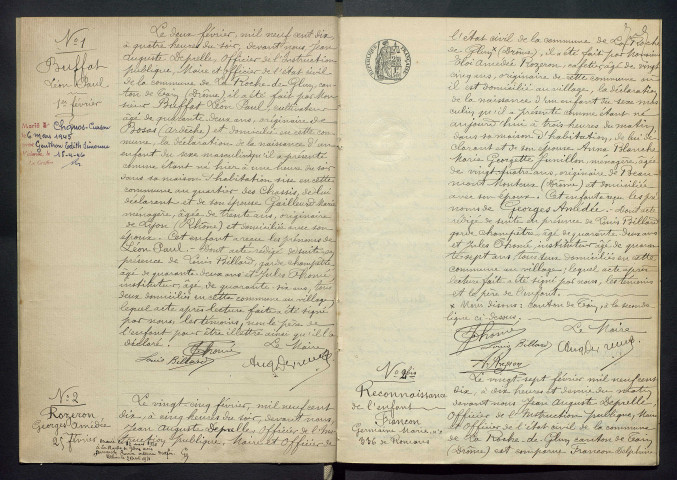 N° 1
Buffat
Léon Paul
1er février
Marié à Chonas
mars 1945
Gauthon Edith Simonne
Le deux février, mil neuf cent dix
à quatre heures du soir, devant nous Jean
Auguste Depelle, Officier de l'instruction
publique, Maire et Officier de l'état civil
de la commune de La Roche-de-Glun, can-
ton de Tain (Drôme) il a été fait par Mon-
sieur Buffat Léon Paul, cultivateur
âgé de quarante deux ans, originaire de
Bosas (Ardèche) et domicilié en cette com-
mune, la déclaration de la naissance d'un
enfant du sexe masculin qu'il a présenté
comme étant né hier à une heure du soir
dans sa maison d'habitation sise en cette
commune au quartier des Chassis, de lui
déclarant et de son épouse Marie
ménagère, âgée de trente ans, originaire
de Lyon (Rhône) et domiciliée avec son
époux. Cet enfant a reçu les prénoms de
Léon Paul. Dont acte rédigé de suite en
présence de Louis Billard, garde champêtre
âgé de quarante deux ans et Jules Thomé
instituteur âgé de quarante six ans, tous
deux domiciliés en cette commune au village
lequel acte après lecture faite a été signé
par nous, les témoins, non le père de
l'enfant pour être illettré ainsi qu'il l'a
déclaré.
Le Maire
JThomé
Louis Billard
Aug Depelle
N° 2
Rozeron
Georges Amédée
25 février
Le vingt-cinq février, mil neuf cent
dix, à cinq heures du soir, devant nous,
Jean Auguste Depelle, Officier de l'Ins-
truction publique, Maire et Officier de
l'état civil de la commune de La Roche
de Glun (Drôme), il a été fait par Monsieur
Eloi Amédée Rozeron, cafetier, âgé de vingt
cinq ans, originaire de cette commune où
il est domicilié au village, la déclaration
de la naissance d'un enfant du sexe mas-
culin qu'il a présenté comme étant né
aujourd'hui à trois heures du matin,
dans sa maison d'habitation, de lui dé-
clarant et de son épouse Anna Blanche
Marie Georgette Junillon ménagère, âgée
de vingt-quatre ans, originaire de Beau-
mont Monteux (Drôme) et domiciliée
avec son époux. Cet enfant a reçu les pré-
noms de Georges Amédée. Dont acte
rédigé de suite en présence de Louis Billard
garde champêtre, âgé de quarante deux ans
et Jules Thomé, instituteur âgé de quaran-
te sept ans tous deux domiciliés en cette
commune au village; lequel acte après
lecture faite a été signé par nous, les témoins
et le père de l'enfant.
x Nous disons: canton de Tain, à la seconde
ligne ci-dessus.
Le Maire
JThomé
Louis Billard
Aug Depelle
Rozeron
N° 2 bis
Reconnaissance
de l'enfant
Francon
Germaine Marie, n°
336 de Romans
Le vingt-sept février mil neuf cent
dix, à dix heures et demie du matin,
devant nous Jean Auguste Depelle
Officier de l'Instruction publique, Maire
et Officier de l'état civil de la commune
de La Roche-de-Glun canton de Tain
(Drôme) est comparue Francon Delphine